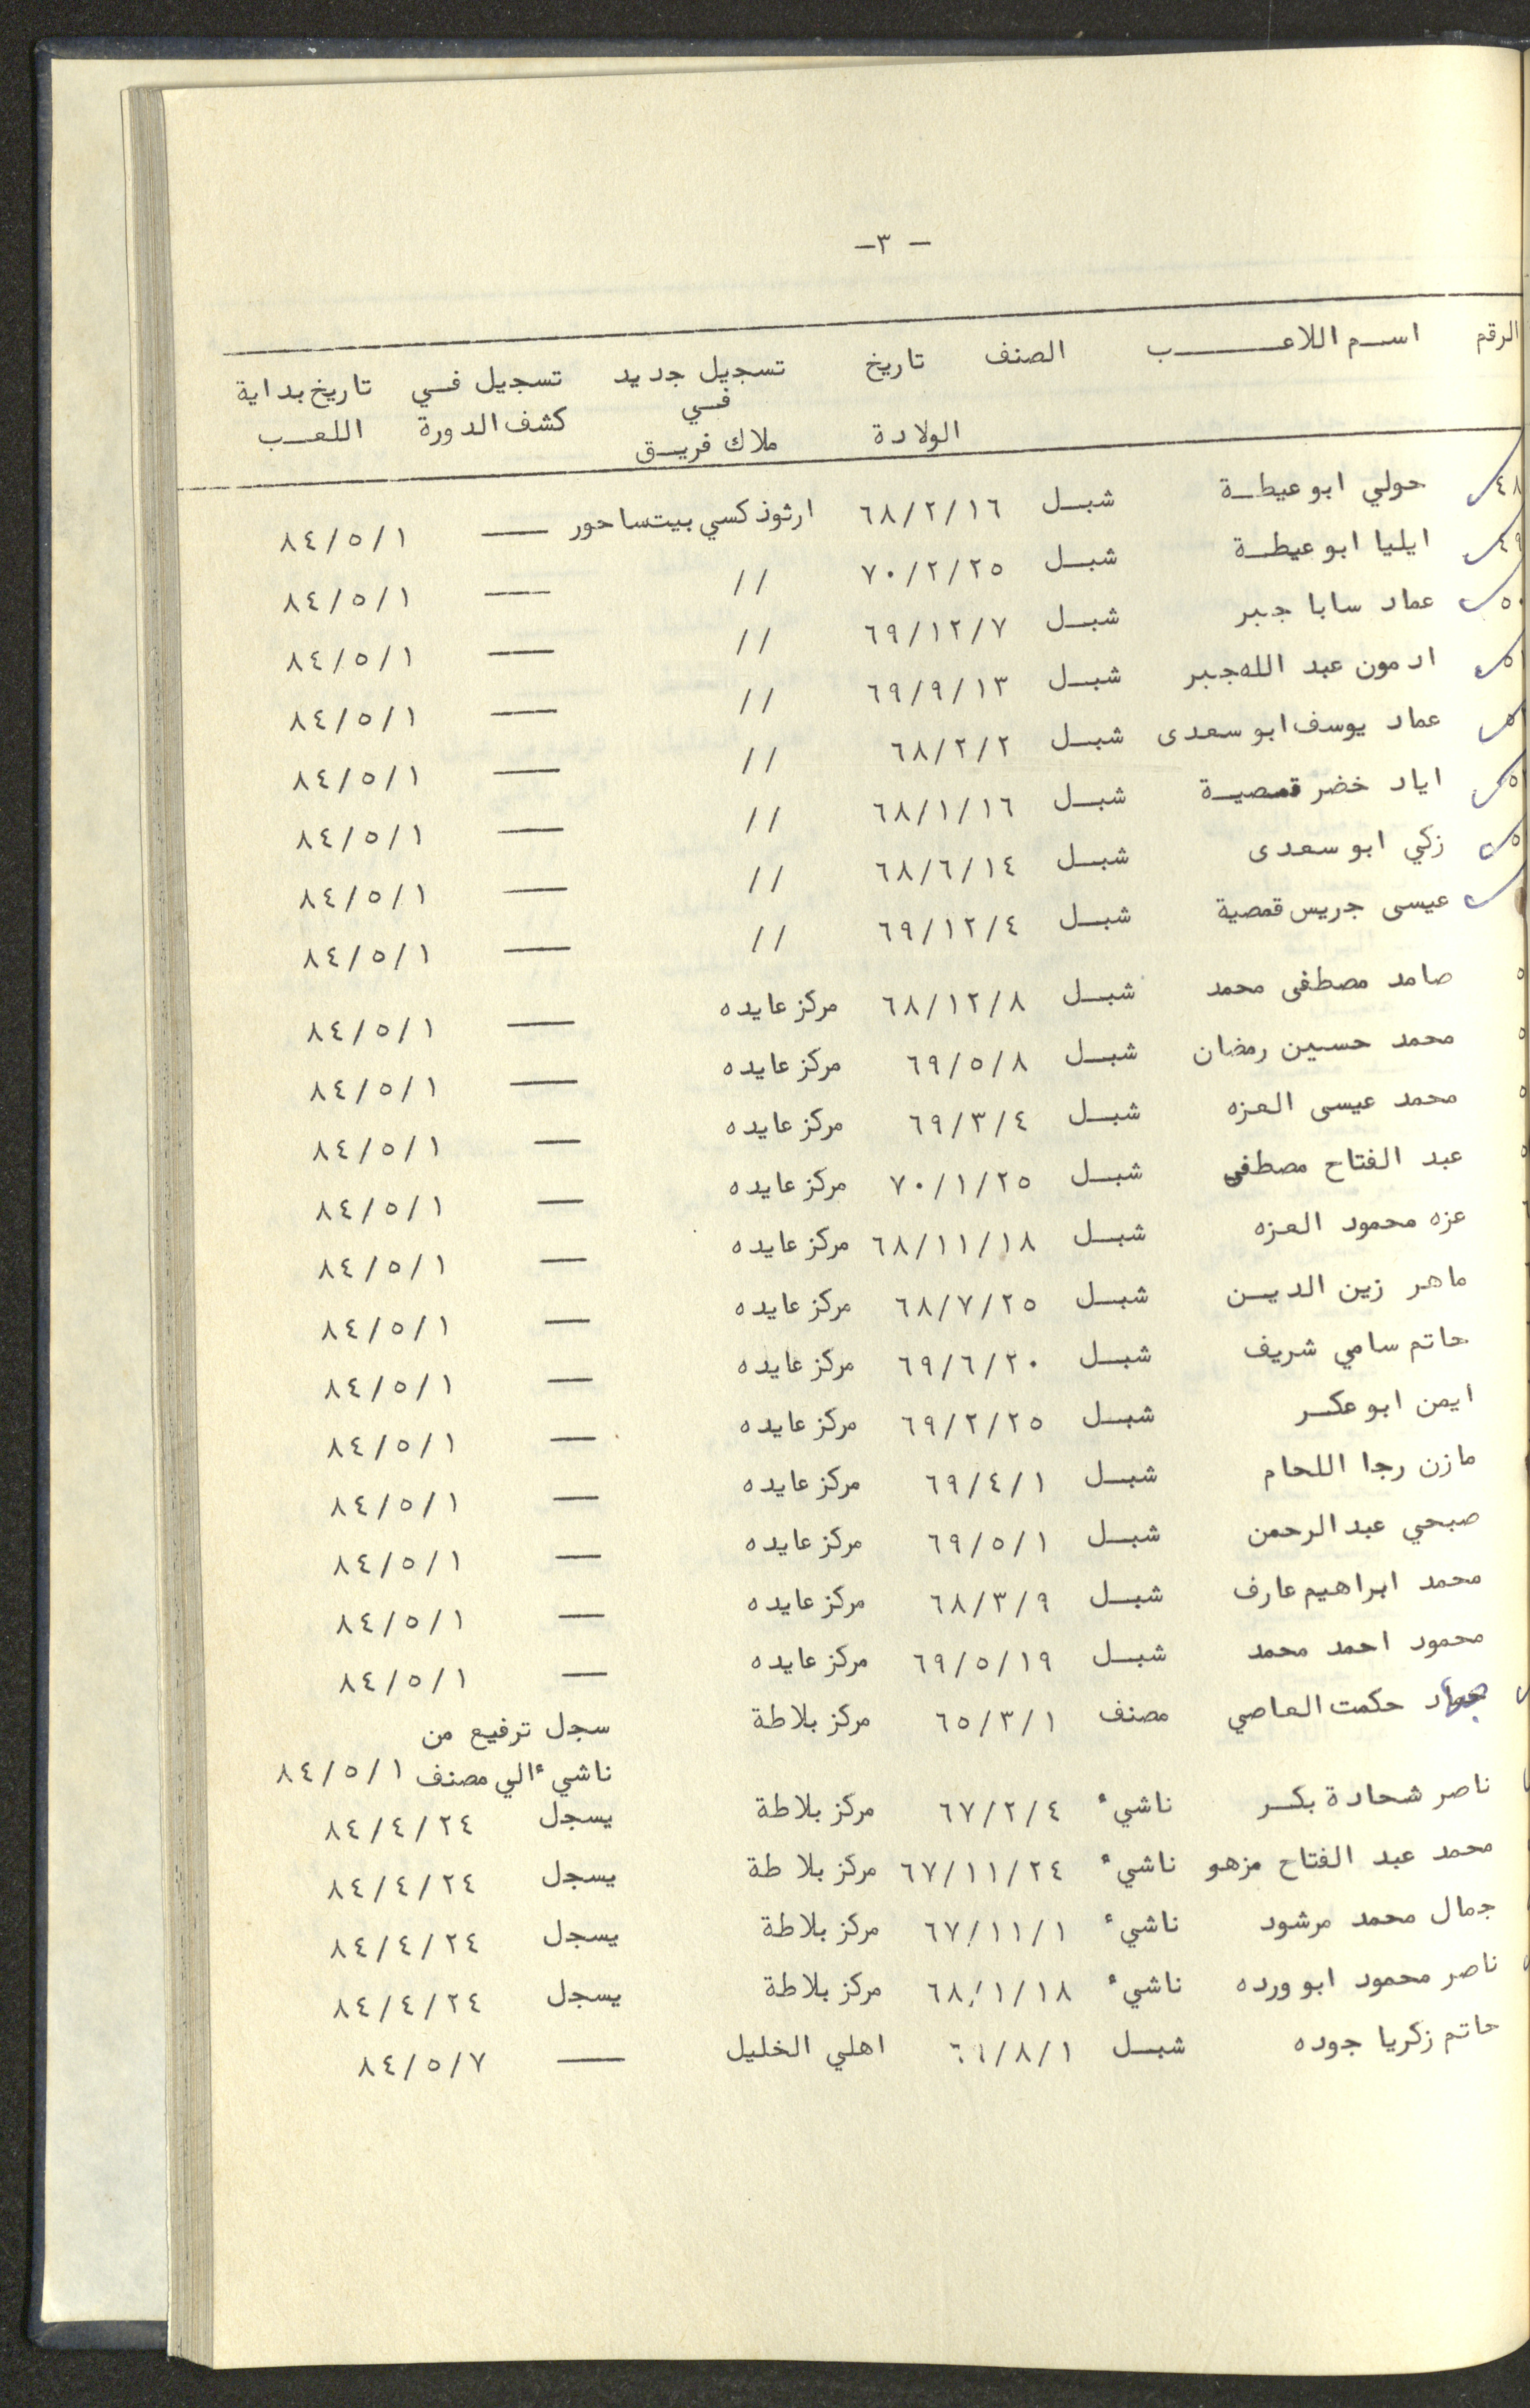 - ٣-
الرقم اسم اللاعب الصنف تاريخ الولادة تسجيل جديد في ملاك فريق تسجيل في كشف الدورة تاريخ بداية اللعب
٤٨ حولي ابو عيطة شبل ٦٨/٢/١٦ ارثوذكسي بيتساحور — ٨٤/٥/١
٤٩ ايليا ابو عيطة شبل ٧٠/٢/٢٥ // — ٨٤/٥/١
٥٠ عماد سابا جبر شبل ٦٩/١٢/٧ // — ٨٤/٥/١
٥ ادمون عبد الله جبر شبل ٦٩/٩/١٣ // — ٨٤/٥/١
٥ عماد يوسف ابو سعدى شبل ٦٨/٢/٢ // — ٨٤/٥/١
٥ اياد خضر قمصية شبل ٦٨/١/١٦ // — ٨٤/٥/١
٥ زكي ابو سعدى شبل ٦٨/٦/١٤ // — ٨٤/٥/١
عيسى جريس قمصية شبل ٦٩/١٢/٤ // — ٨٤/٥/١
٥ صامد مصطفى محمد شبل ٦٨/١٢/٨ مركز عايده — ٨٤/٥/١
٥ محمد حسين رمضان شبل ٦٩/٥/٨ مركز عايده — ٨٤/٥/١
٥ محمد عيسى العزه شبل ٦٩/٣/٤ مركز عايده — ٨٤/٥/١
٥ عبد الفتاح مصطفى شبل ٧٠/١/٢٥ مركز عايده — ٨٤/٥/١
عزه محمود العزه شبل ٦٨/١١/١٨ مركز عايده — ٨٤/٥/١
ماهر زين الدين شبل ٦٨/٧/٢٥ مركز عايده — ٨٤/٥/١
حاتم سامي شريف شبل ٦٩/٦/٢٠ مركز عايده — ٨٤/٥/١
ايمن ابو عكر شبل ٦٩/٢/٢٥ مركز عايده — ٨٤/٥/١
مازن رجا اللحام شبل ٦٩/٤/١ مركز عايده — ٨٤/٥/١
صبحي عبد الرحمن شبل ٦٩/٥/١ مركز عايده — ٨٤/٥/١
محمد ابراهيم عارف شبل ٦٨/٣/٩ مركز عايده — ٨٤/٥/١
محمود احمد محمد شبل ٦٩/٥/١٩ مركز عايده — ٨٤/٥/١
حكمت العاصي مصنف ٦٥/٣/١ مركز بلاطة سجل ترفيع من
ناشيء الي مصنف ٨٤/٥/١
ناصر شحادة بكر ناشيء ٦٧/٢/٤ مركز بلاطة يسجل ٨٤/٤/٢٤
محمد عبد الفتاح مزهو ناشيء ٦٧/١١/٢٤ مركز بلاطة يسجل ٨٤/٤/٢٤
جمال محمد مرشود ناشيء ٦٧/١١/١ مركز بلاطة يسجل ٨٤/٤/٢٤
ناصر محمود ابو ورده ناشيء ٦٨/١/١٨ مركز بلاطة يسجل ٨٤/٤/٢٤
حاتم زكريا جوده شبل اهلي الخليل — ٨٤/٥/٧